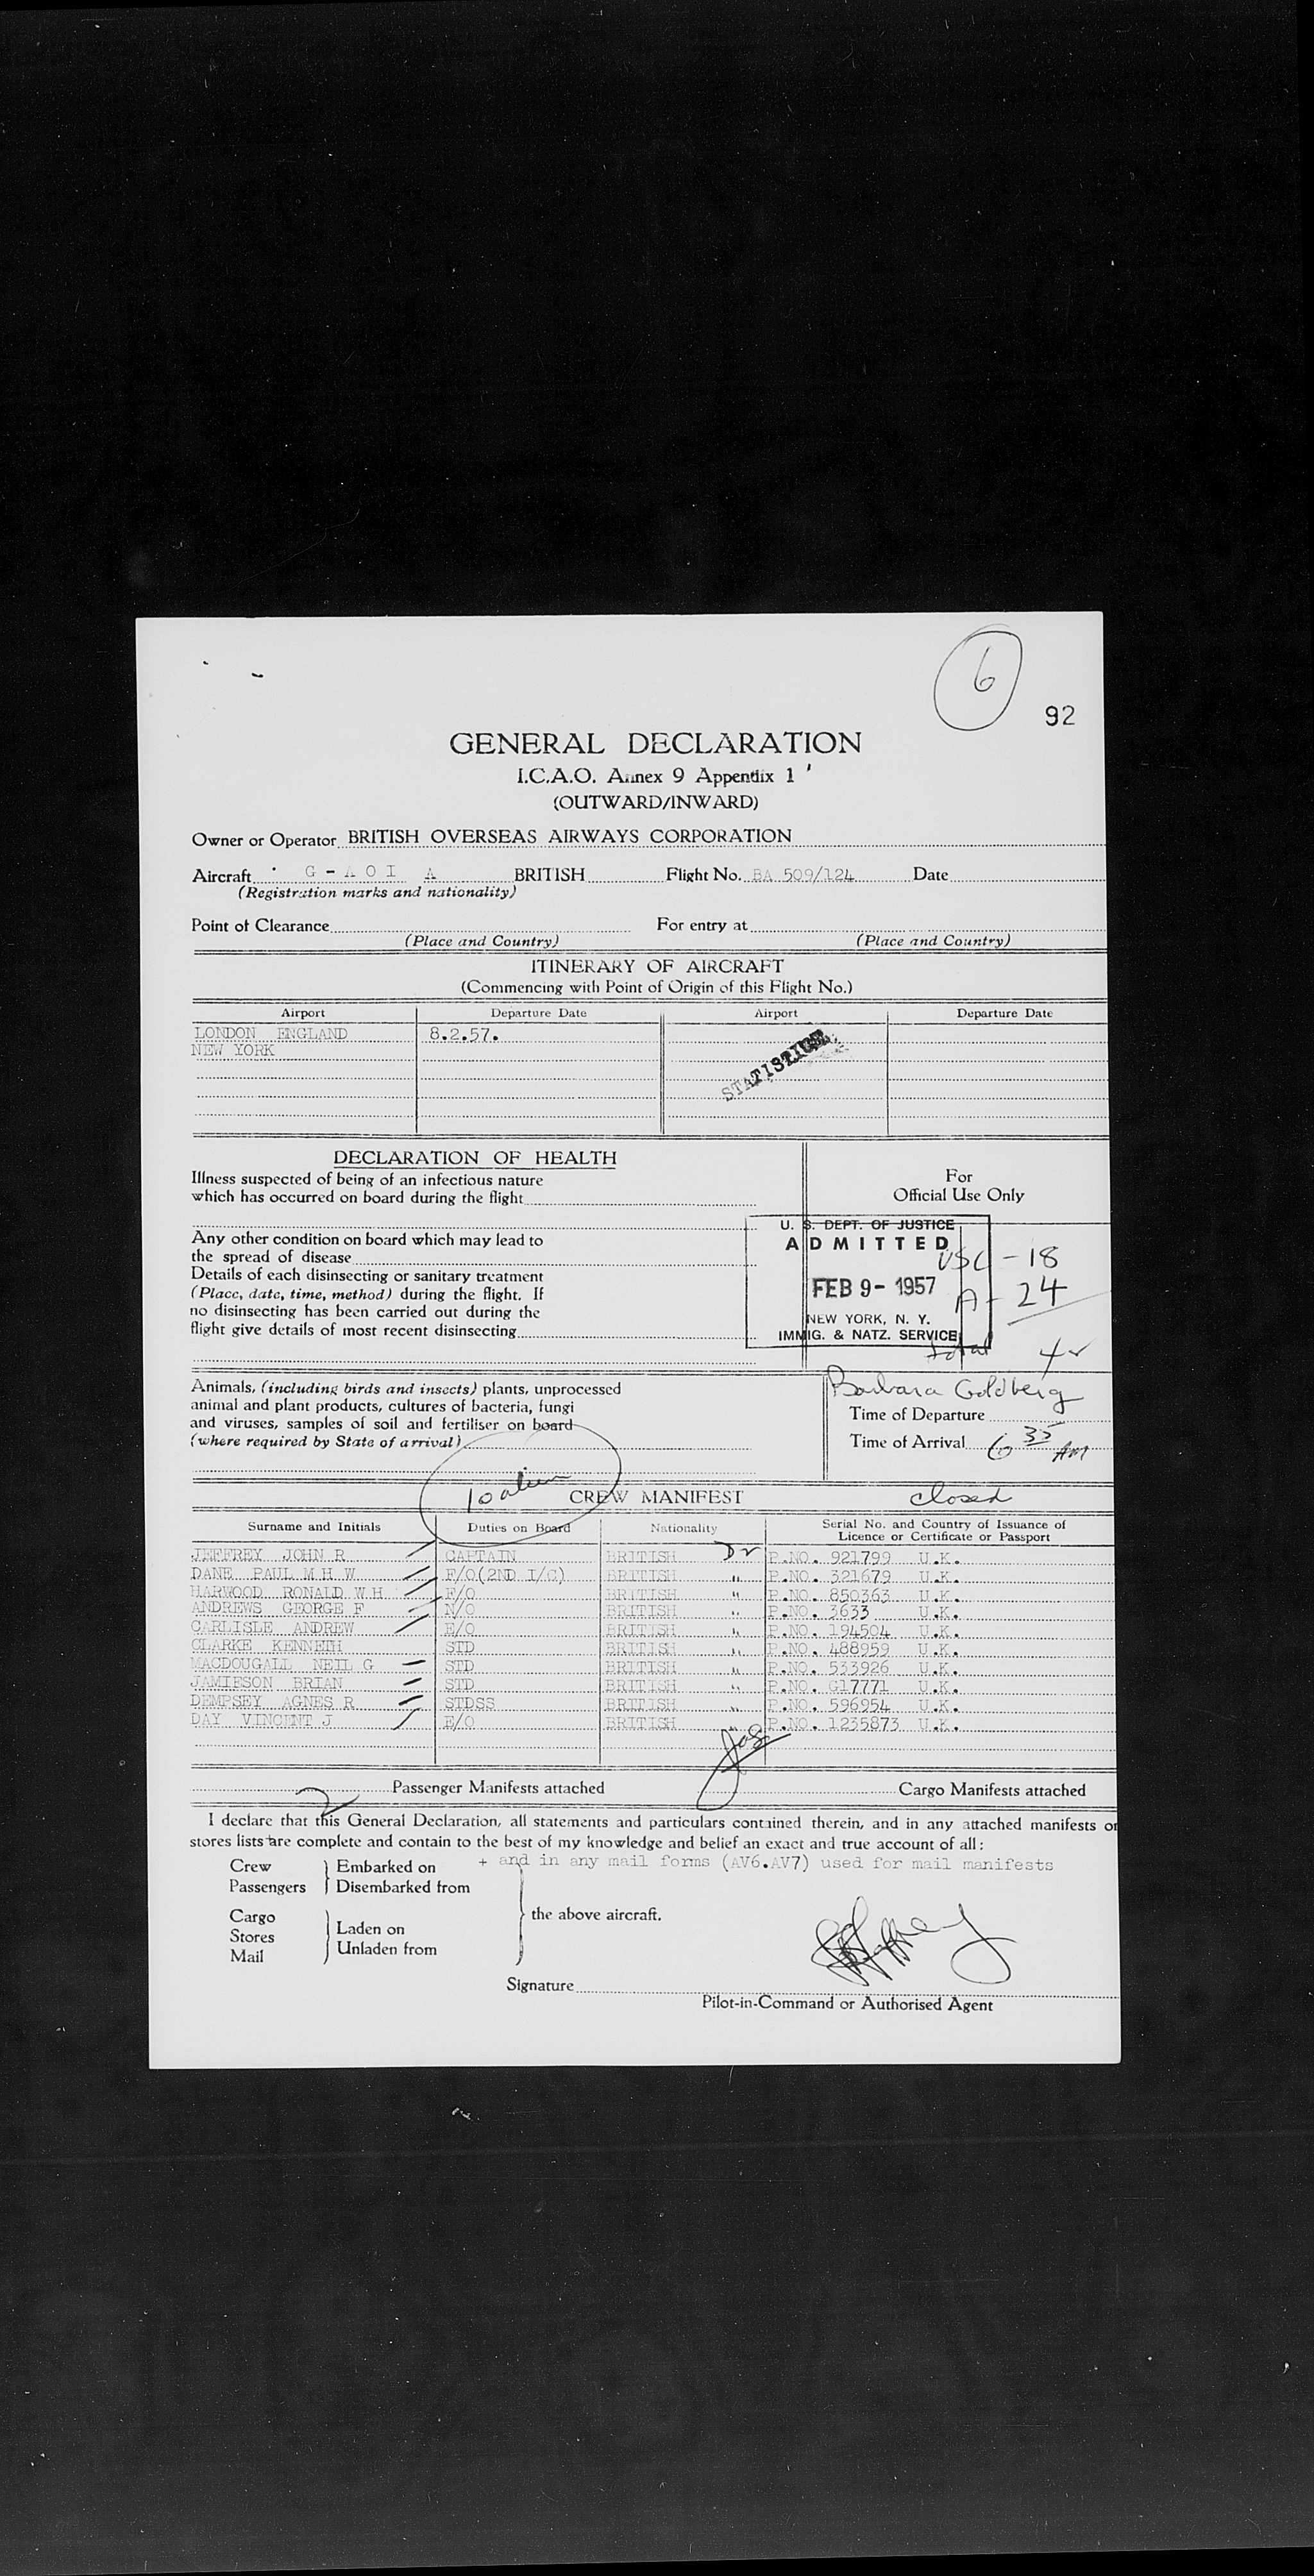 6
92
GENERAL DECLARATION
I.C.A.O. Annex 9 Appendix 1
(OUTWARD/INWARD)
Owner or Operator BRITISH OVERSEAS AIRWAYS CORPORATION
Aircraft G - A O I A BRITISH Flight No. BA 509/124 Date
(Registration marks and nationality)
Point of Clearance For entry at
(Place and Country) (Place and Country)
ITINERARY OF AIRCRAFT
(Commencing with Point of Origin of this Flight No.)
Airport Departure Date Airport Departure Date
LONDON ENGLAND 8.2.57.
NEW YORK
STATISTICS
DECLARATION OF HEALTH
Illness suspected of being of an infectious nature
which has occurred on board during the flight
For
Official Use Only
Any other condition on board which may lead to
the spread of disease
Details of each disinsecting or sanitary treatment
(Place, date, time, method) during the flight. If
no disinsecting has been carried out during the
flight give details of most recent disinsecting
U. S. DEPT. OF JUSTICE
ADMITTED
USC - 18
FEB 9 - 1957
A - 24
NEW YORK, N. Y.
IMMIG. & NATZ. SERVICE
total 42
Animals, (including birds and insects) plants, unprocessed
animal and plant products, cultures of bacteria, fungi
and viruses, samples of soil and fertiliser on board
(where required by State of arrival)
Barbara Goldberg
Time of Departure
Time of Arrival 6 35 AM
10 alien
CREW MANIFEST
closed
Surname and Initials Duties on Board Nationality Serial No. and Country of Issuance of
Licence or Certificate or Passport
JEFFREY JOHN R CAPTAIN BRITISH D2 P.NO. 921799 U.K.
DANE PAUL M H W F/O(2ND I/C) BRITISH " P.NO. 321679 U.K.
HARWOOD RONALD W H F/O BRITISH " P.NO. 850363 U.K.
ANDREWS GEORGE F N/O BRITISH " P.NO. 3633 U.K.
CARLISLE ANDREW E/O BRITISH " P.NO. 194504 U.K.
CLARKE KENNETH STD BRITISH " P.NO. 488959 U.K.
MACDOUGALL NEIL G STD BRITISH " P.NO. 533926 U.K.
JAMIESON BRIAN STD BRITISH " P.NO. G17771 U.K.
DEMPSEY AGNES R STDSS BRITISH " P.NO. 596954 U.K.
DAY VINCENT J E/O BRITISH " P.NO. 1235873 U.K.
2 Passenger Manifests attached Cargo Manifests attached
I declare that this General Declaration, all statements and particulars contained therein, and in any attached manifests or
stores lists are complete and contain to the best of my knowledge and belief an exact and true account of all:
+ and in any mail forms (AV6.AV7) used for mail manifests
Crew Embarked on
Passengers Disembarked from
Cargo
Stores Laden on
Mail Unladen from
the above aircraft.
Signature
Pilot-in-Command or Authorised Agent